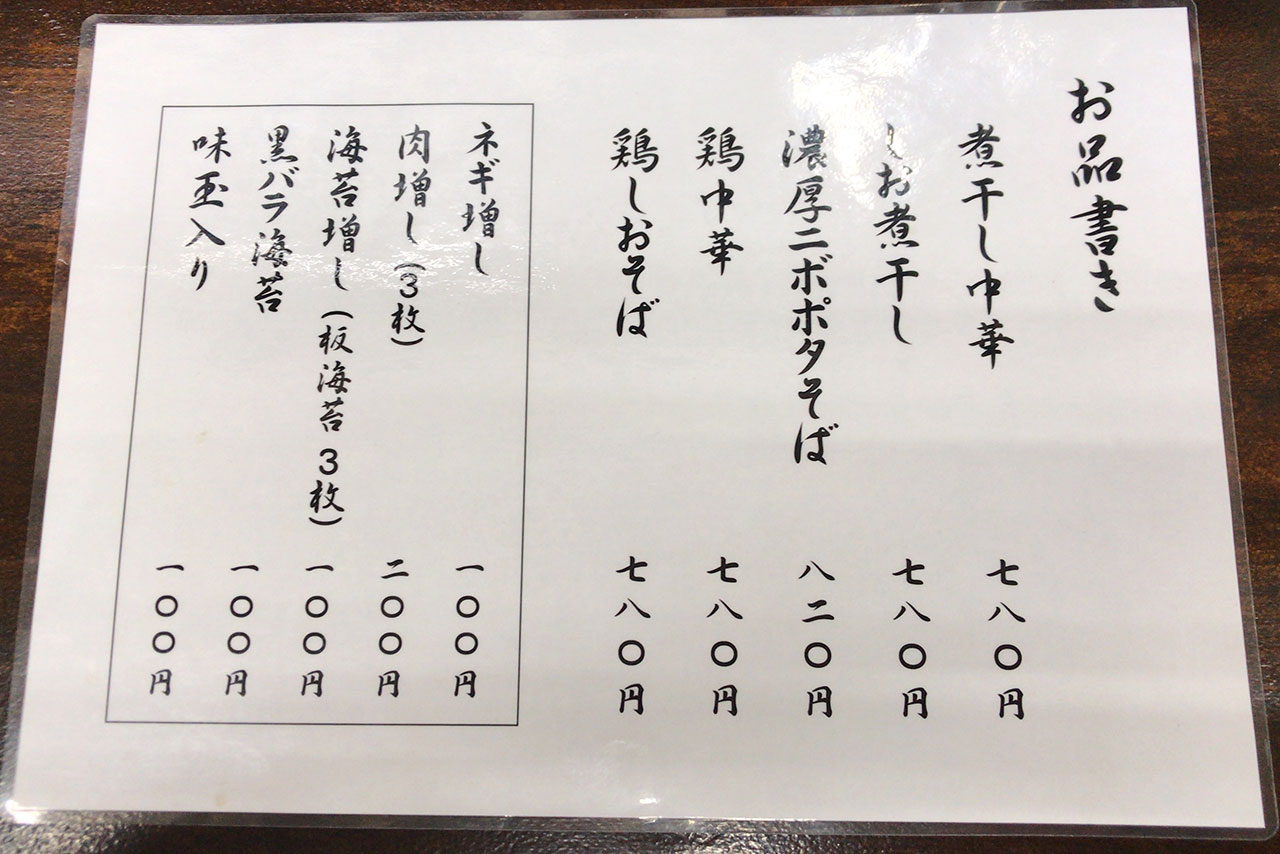 お品書き
煮干し中華 七八〇円
しお煮干し 七八〇円
濃厚ニボポタそば 八二〇円
鶏中華 七八〇円
鶏しおそば 七八〇円
ネギ増し 一〇〇円
肉増し(3枚) 二〇〇円
海苔増し(板海苔3枚) 一〇〇円
黒バラ海苔 一〇〇円
味玉入り 一〇〇円